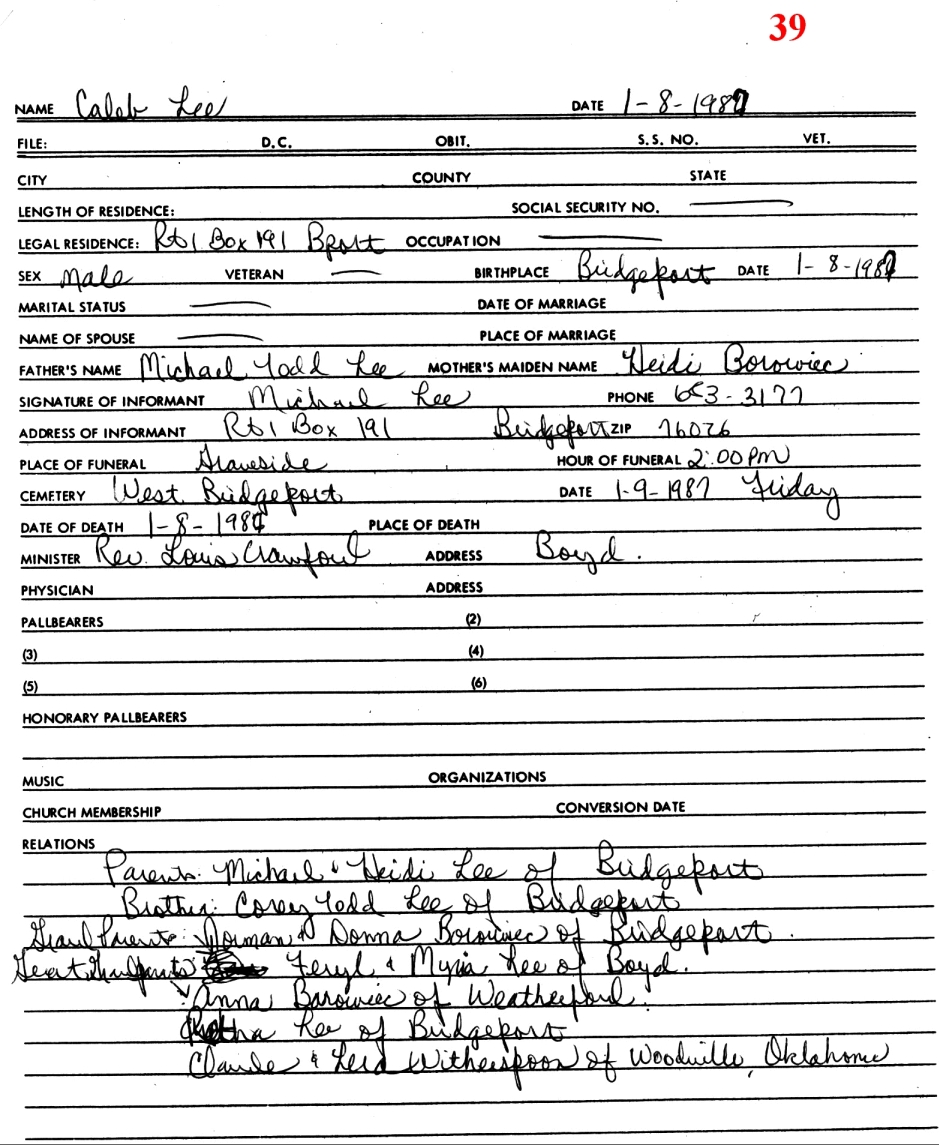 39
NAME Caleb Lee DATE 1-8-1987
FILE: D.C. OBIT. S.S. NO. VET.
CITY COUNTY STATE
LENGTH OF RESIDENCE: SOCIAL SECURITY NO. —
LEGAL RESIDENCE: Rt 1 Box 191 Bport OCCUPATION —
SEX Male VETERAN — BIRTHPLACE Bridgeport DATE 1-8-1987
MARITAL STATUS — DATE OF MARRIAGE
NAME OF SPOUSE — PLACE OF MARRIAGE
FATHER'S NAME Michael Todd Lee MOTHER'S MAIDEN NAME Heidi Borowiec
SIGNATURE OF INFORMANT Michael Lee PHONE 683-3177
ADDRESS OF INFORMANT Rt 1 Box 191 Bridgeport ZIP 76026
PLACE OF FUNERAL Graveside HOUR OF FUNERAL 2:00 PM
CEMETERY West Bridgeport DATE 1-9-1987 Friday
DATE OF DEATH 1-8-1987 PLACE OF DEATH
MINISTER Rev. Louis Crawford ADDRESS Boyd.
PHYSICIAN ADDRESS
PALLBEARERS (2)
(3) (4)
(5) (6)
HONORARY PALLBEARERS
MUSIC ORGANIZATIONS
CHURCH MEMBERSHIP CONVERSION DATE
RELATIONS
Parents: Michael & Heidi Lee of Bridgeport
Brother: Corey Todd Lee of Bridgeport
Grand Parents: Norman & Donna Borowiec of Bridgeport.
Great Grandparents Feryl & Myria Lee of Boyd.
Anna Barowiec of Weatherford.
Lee of Bridgeport
Claude & Witherspoon of Woodville, Oklahoma